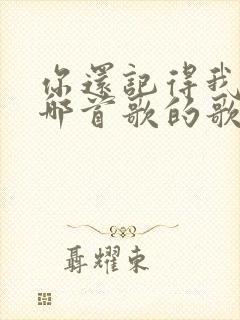 你還記得我
那首歌的歌
聶耀東